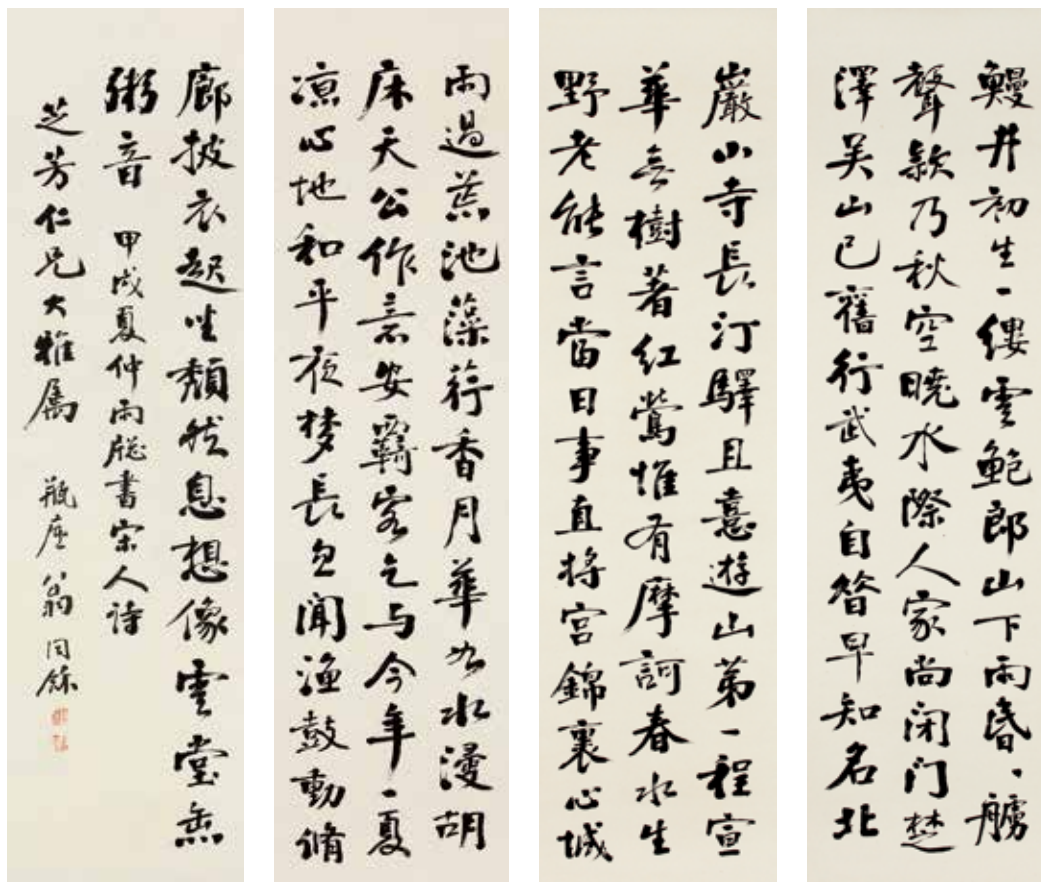 鰻井初生一縷雲鮑郎山下雨昏、艣
聲欵乃秋空曉水際人家尚闭门楚
澤吴山已舊行武夷自昝早知名北
巖山寺長汀驛且憙遊山第一程宣
華無樹著紅鶯惟有摩訶春水生
野老能言當日事直將宮錦裹心城
雨過荒池藻荇香月華如水漫胡
床天公作意安覊客乞与今年一夏
凉心地和平夜梦長忽聞漁鼓動脩
廊披衣起坐頽然息想像雲堂無
粥音 甲戌夏仲雨牕書宋人诗
芝芳仁兄大雅属 瓶庐翁同龢